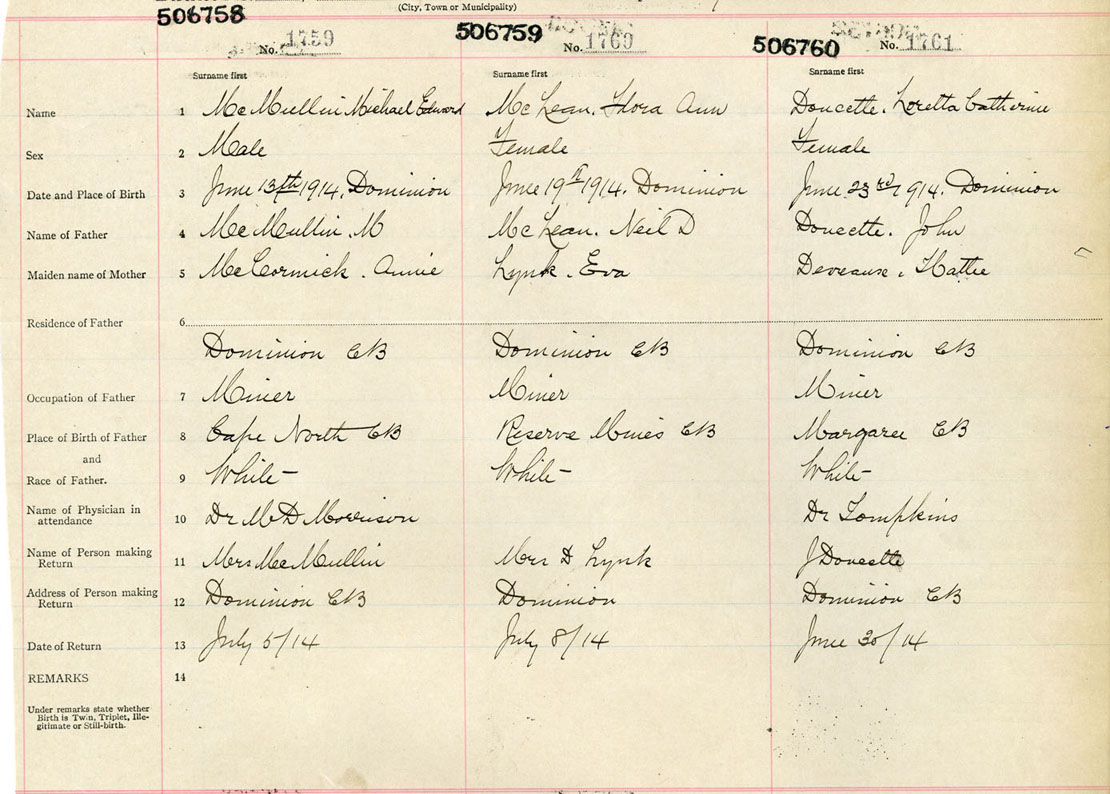 (City, Town or Municipality)
506758 506759 506760
No. 1759 No. 1760 No. 1761
Surname first Surname first Surname first
Name 1 McMullin Michael Edward McLean. Flora Ann Doucette. Loretta Catherine
Sex 2 Male Female Female
Date and Place of Birth 3 June 13th 1914. Dominion June 19th 1914. Dominion June 23rd 1914. Dominion
Name of Father 4 McMullin. M McLean. Neil D Doucette. John
Maiden name of Mother 5 McCormick. Annie Lynk. Eva Deveause. Hattie
Residence of Father 6
Dominion CB Dominion CB Dominion CB
Occupation of Father 7 Miner Miner Miner
Place of Birth of Father 8 Cape North CB Reserve Mines CB Margaree CB
and
Race of Father. 9 White White White
Name of Physician in
attendance 10 Dr M D Morrison Dr Tompkins
Name of Person making
Return 11 Mrs McMullin Mrs D Lynk J Doucette
Address of Person making
Return 12 Dominion CB Dominion Dominion CB
Date of Return 13 July 5/14 July 8/14 June 30/14
REMARKS 14
Under remarks state whether
Birth is Twin, Triplet, Ille-
gitimate or Still-birth.